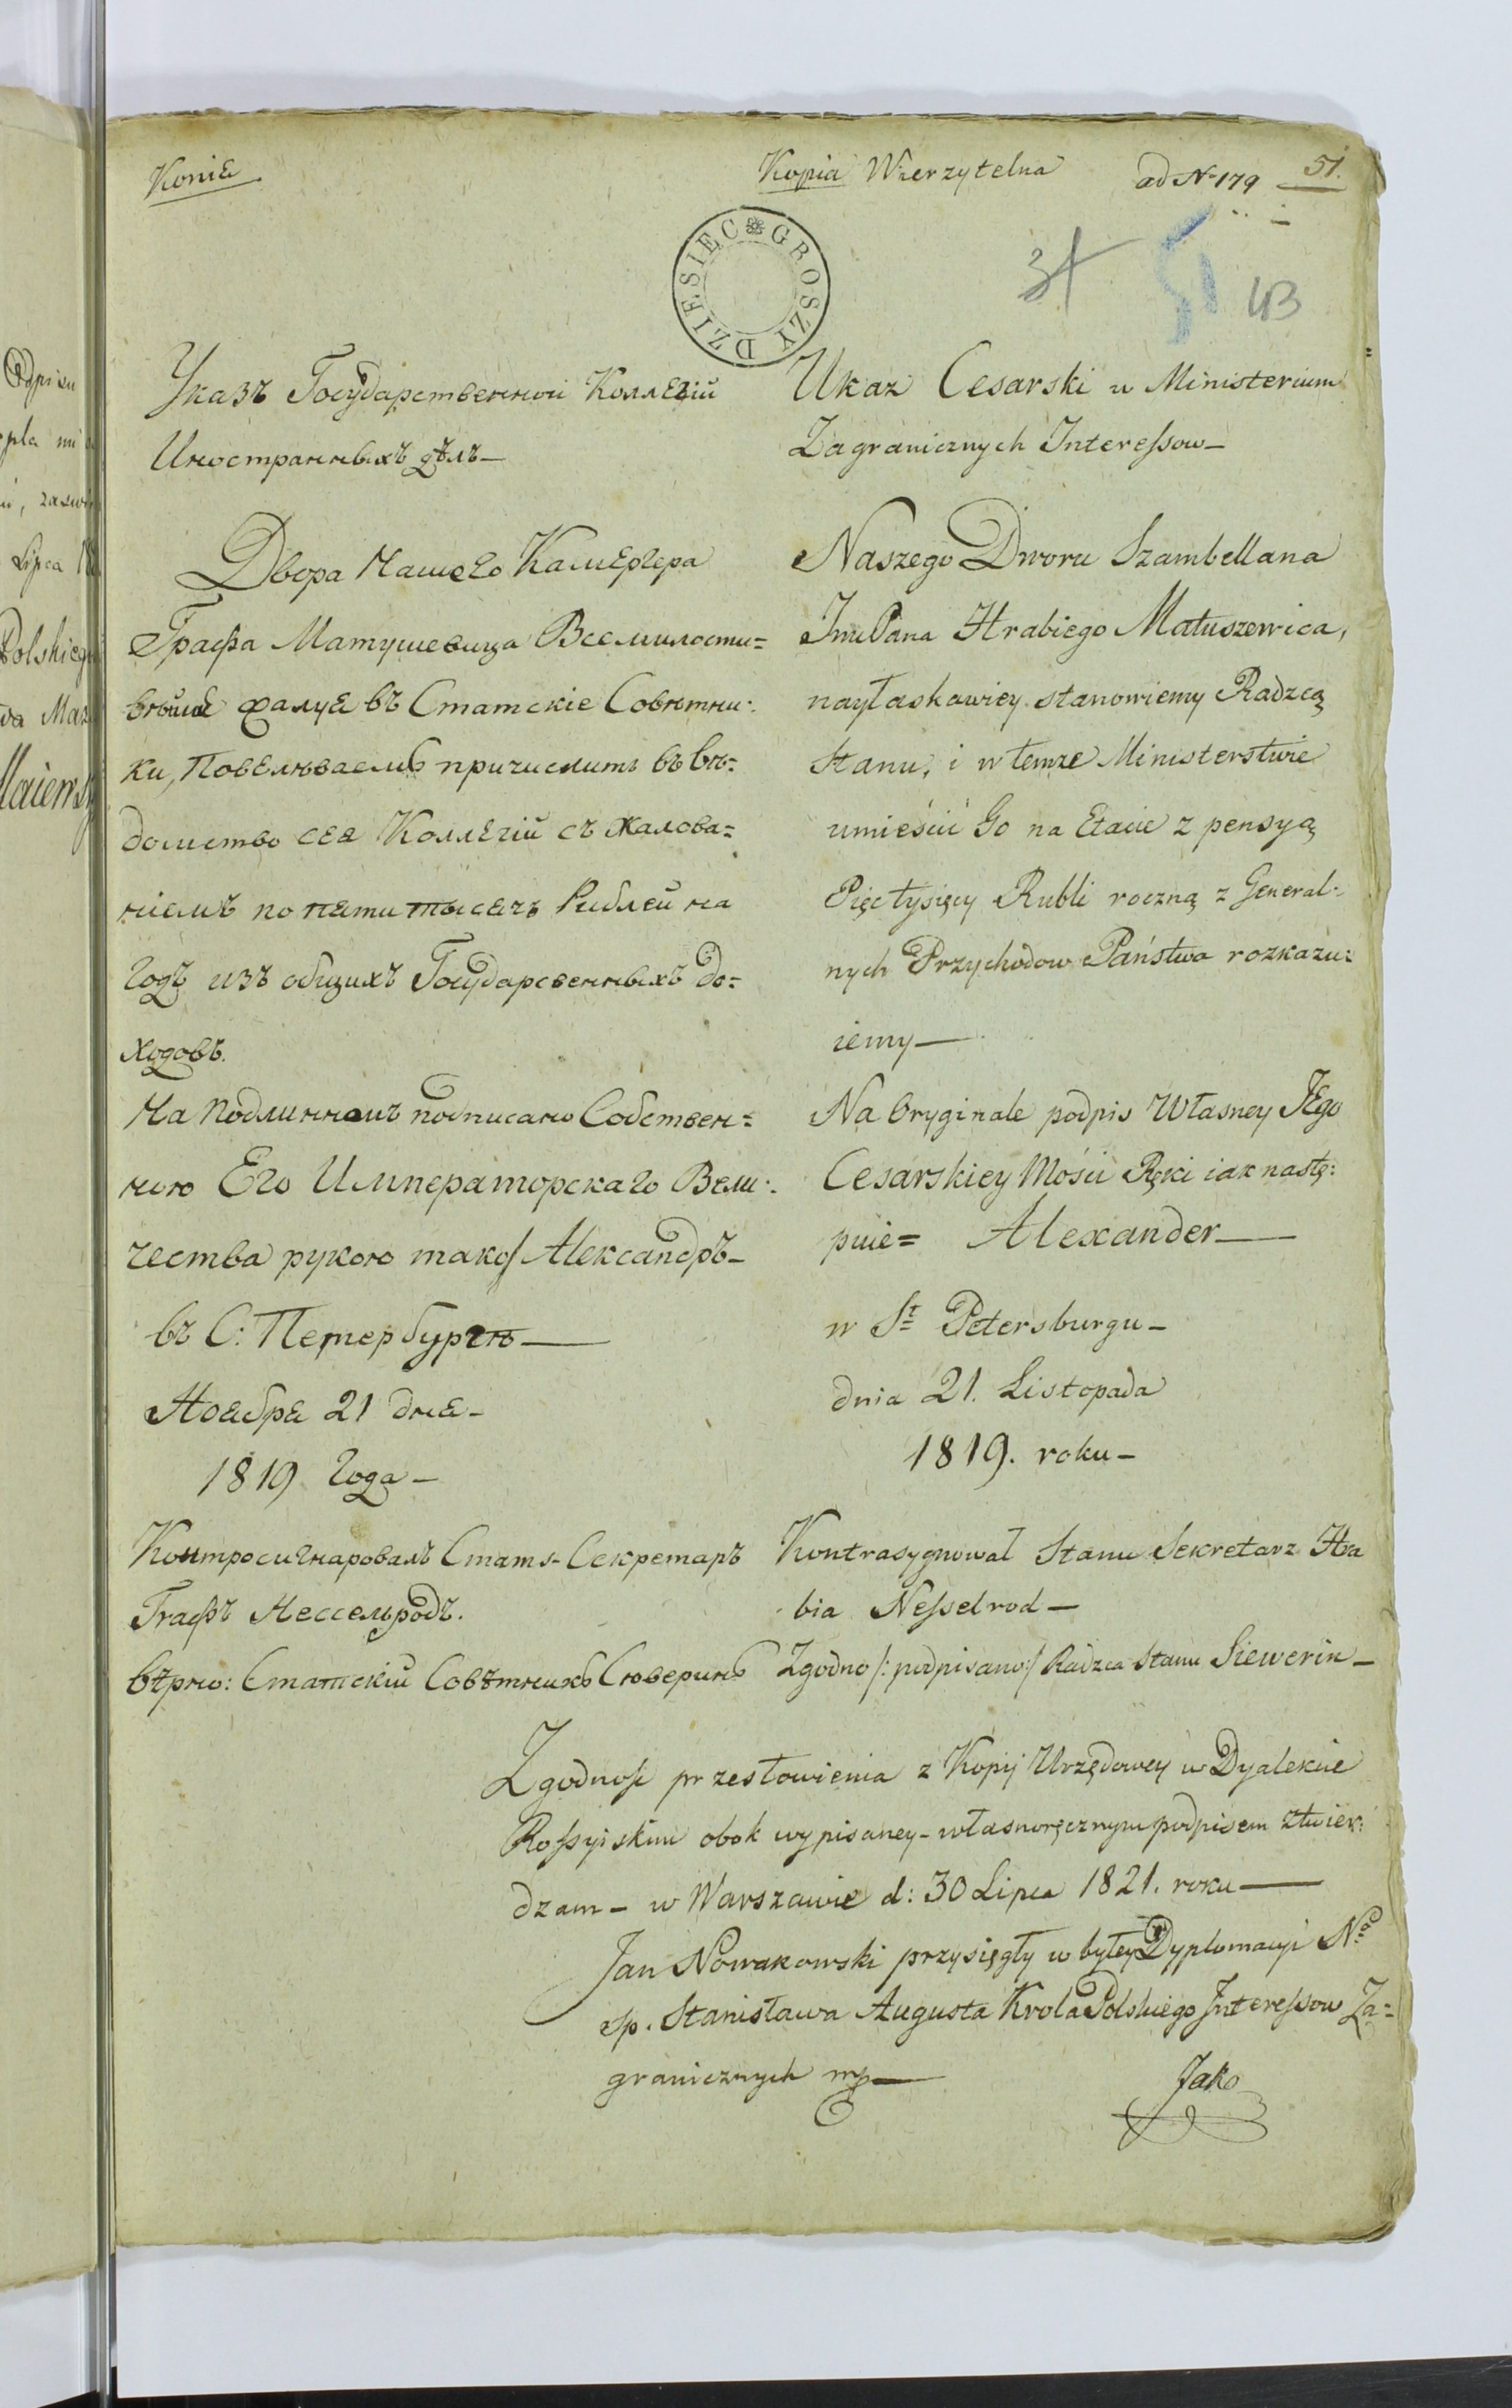 Копія
Kopia Wierzytelna
ad N 179
51.
34
51
43
DZIESIĘC GROSZY
Указъ Государственной Коллегіи
Иностранныхъ дѣлъ—
Двора Нашего Камергера
Графа Матушевица Всемилости=
вѣйше жалуя въ Статскіе Совѣтни=
ки, Повелѣваемъ причислить въ вѣ=
домство сея Коллегіи съ жалова=
ніемъ по пяти тысячъ Рублей на
Годъ изъ общихъ Государсвенныхъ до=
ходовъ.
На Подлинномъ подписано Собствен=
ною Его Императорскаго Вели=
чества рукою тако/ Александръ—
въ С: Петербургѣ—
Ноября 21 дня—
1819 Года—
Контросигнаровалъ Статs-Секретаръ
Графъ Нессельродъ.
вѣрно: Статскій Совѣтникъ Сюверинъ
Ukaz Cesarski w Ministerium
Zagranicznych Interessow—
Naszego Dworu Szambellana
JmPana Hrabiego Matuszewica,
nayłaskawiey stanowiemy Radzcą
Stanu, i w temze Ministerstwie
umieścić Go na Etacie z pensyą
Pięc tysięcy Rubli roczną z General=
nych Przychodow Państwa rozkazu=
iemy—
Na Oryginale podpis Własney JEgo
Cesarskiey Mości Ręki iak nastę:
puie= Alexander—
w St Petersburgu—
dnia 21. Listopada
1819. roku—
Kontrasygnował Stanu Sekretarz Hra
bia Nesselrod—
Zgodno /: podpisano:/ Radzca Stanu Siewerin—
Zgodnosc przesłowienia z Kopij Urzędowey w Dyalekcie
Rossyiskim obok wypisaney— własnoręcznym podpisem ztwier:
dzam— w Warszawie d: 30 Lipca 1821. roku—
Jan Nowakowski przysięgły w byłey Dyplomacyi No
sp. Stanisława Augusta Krola Polskiego Interessow Za=
granicznych mp—
Jako
Odpisu
Lipca 18
Polskieg